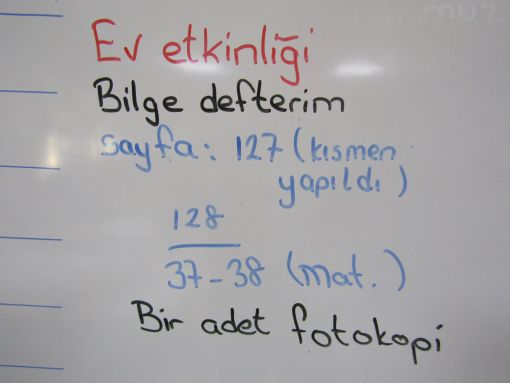 Ev etkinliği
Bilge defterim
sayfa: 127 (kısmen
yapıldı)
128
37-38 (mat.)
Bir adet fotokopi